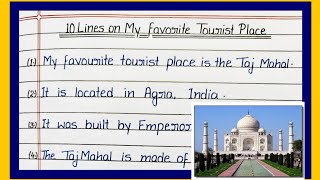 10 Lines on My Favorite Tourist Place
(1) My favourite tourist place is the Taj Mahal.
(2) It is located in Agra, India.
(3) It was built by Emperor
(4) The Taj Mahal is made of